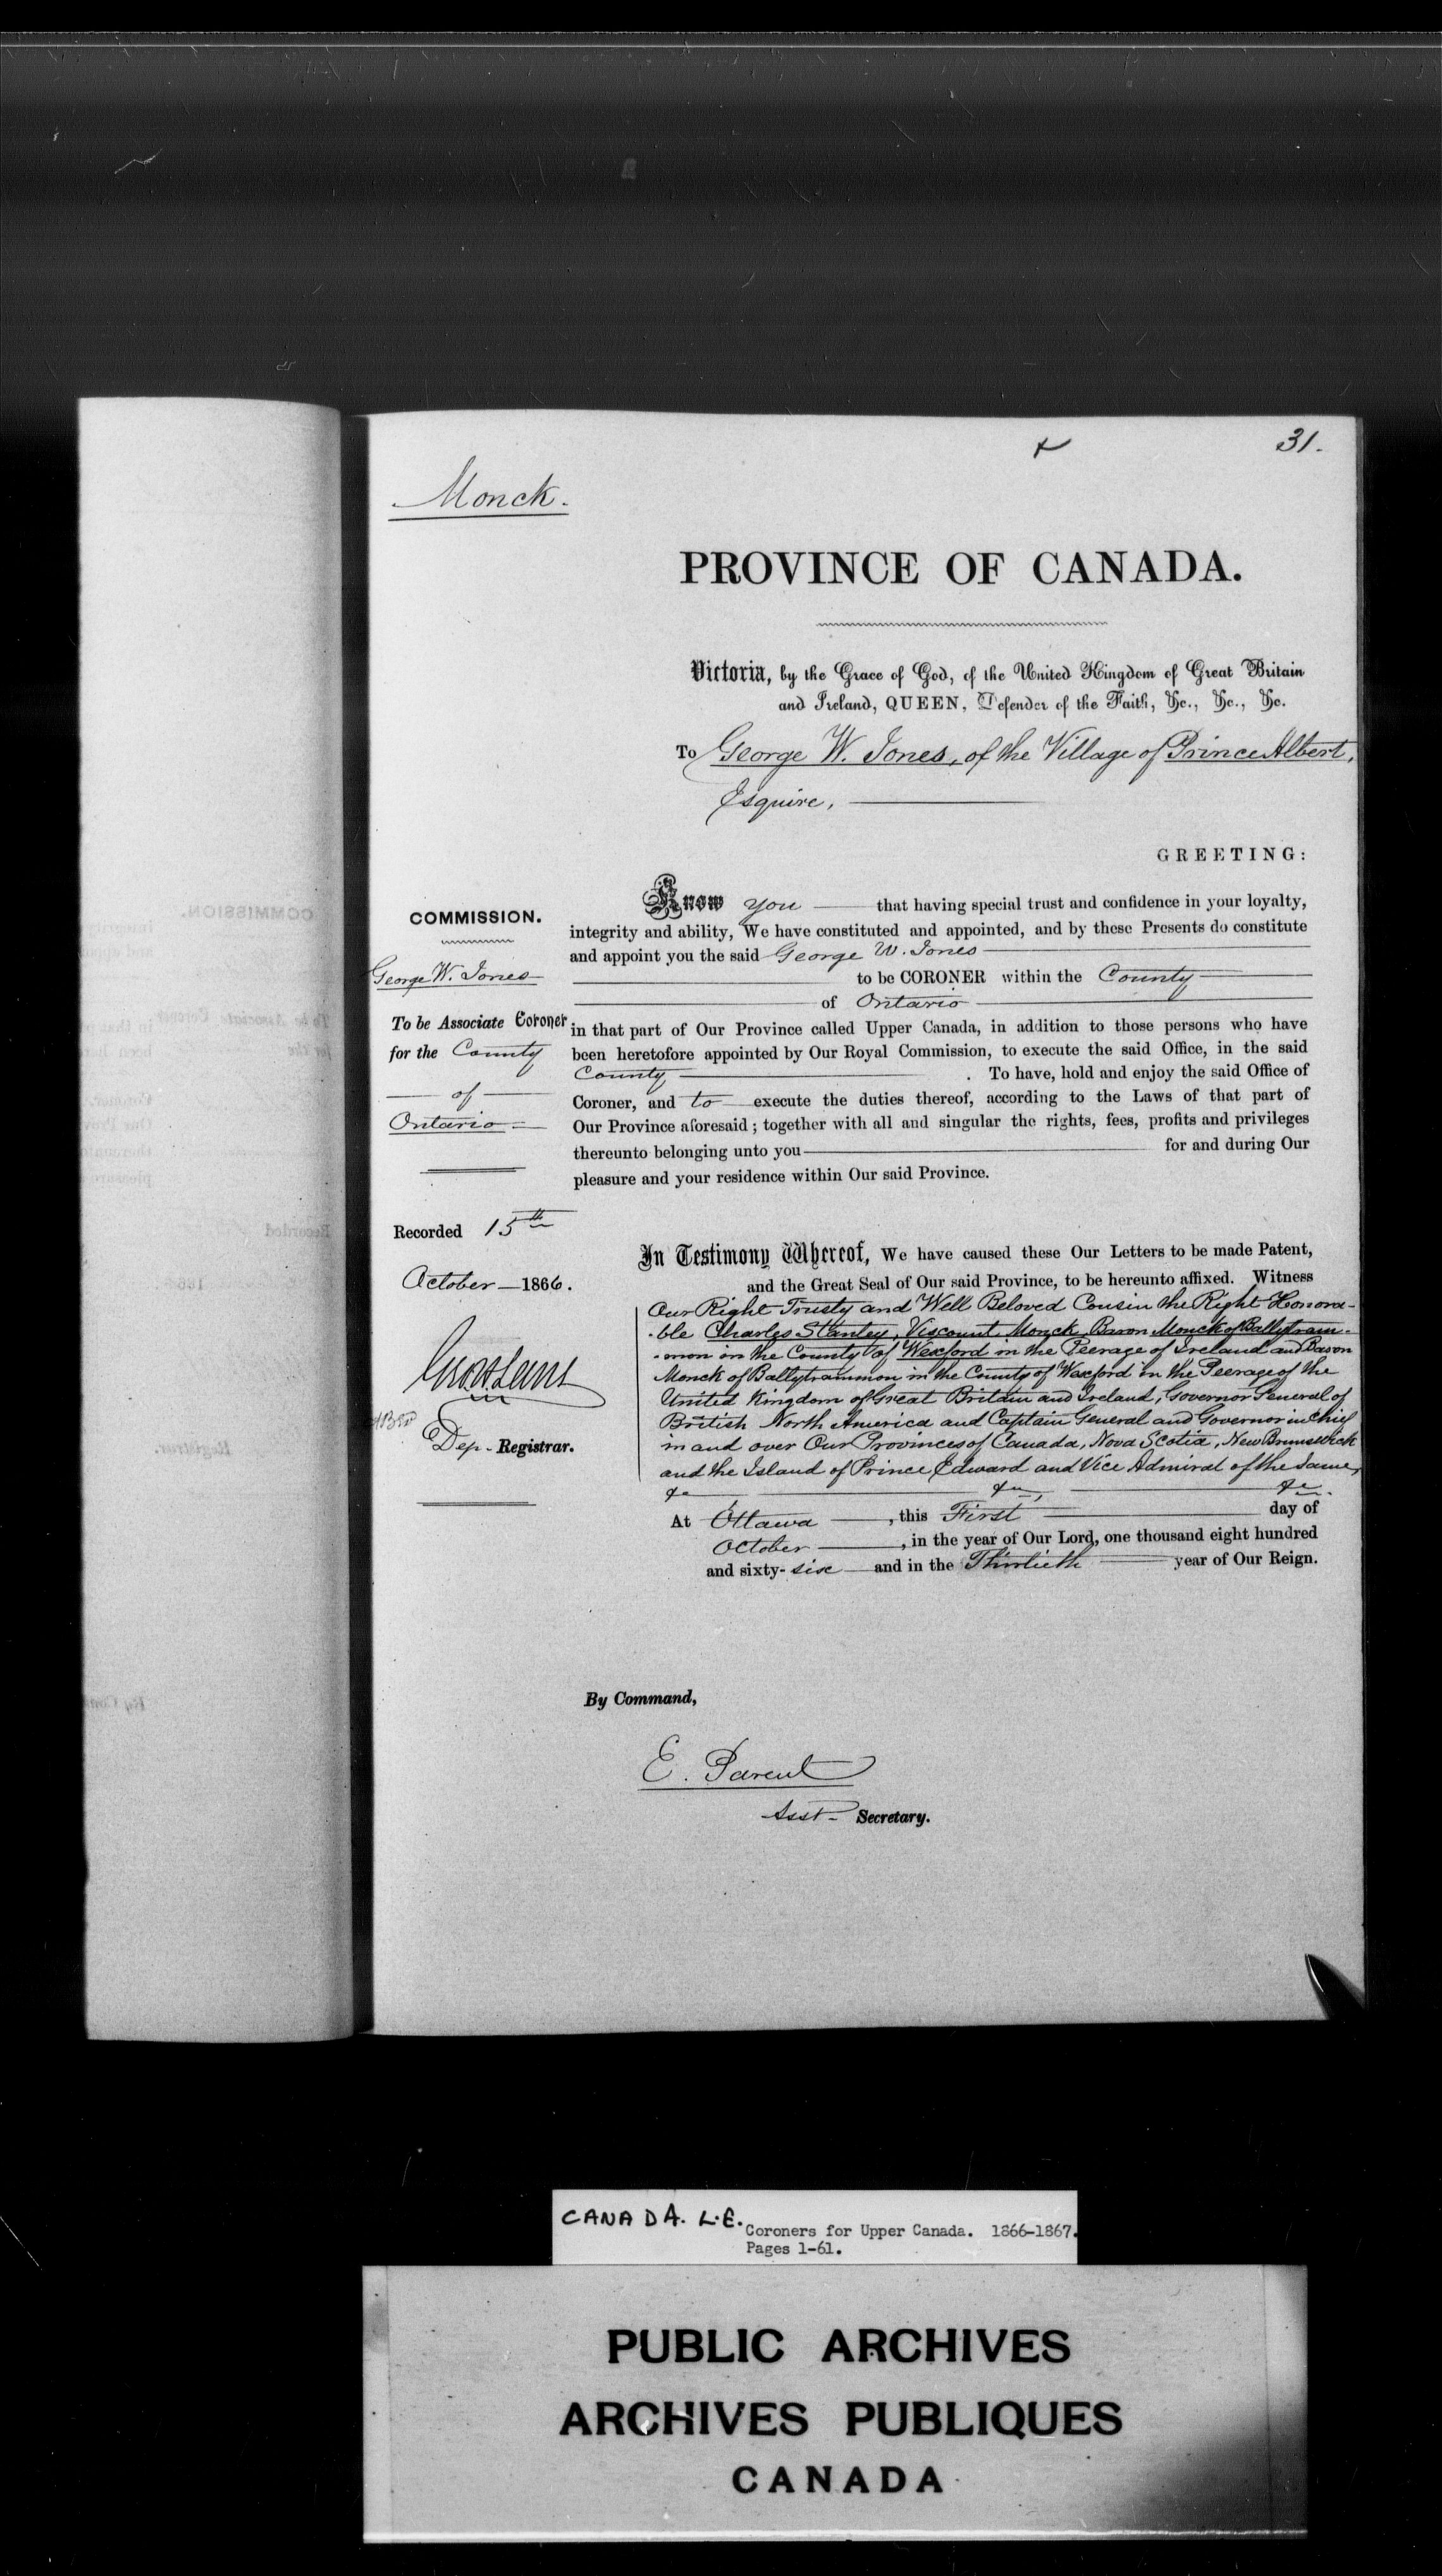 31.
Monck.
PROVINCE OF CANADA.
Victoria, by the Grace of God, of the United Kingdom of Great Britain
and Ireland, QUEEN, Defender of the Faith, &c., &c., &c.
To George W. Jones, of the Village of Prince Albert,
Esquire,
GREETING:
COMMISSION.
George W. Jones
To be Associate Coroner
for the County
of
Ontario
Know you that having special trust and confidence in your loyalty,
integrity and ability, We have constituted and appointed, and by these Presents do constitute
and appoint you the said George W. Jones
to be CORONER within the County
of Ontario
in that part of Our Province called Upper Canada, in addition to those persons who have
been heretofore appointed by Our Royal Commission, to execute the said Office, in the said
County . To have, hold and enjoy the said Office of
Coroner, and to execute the duties thereof, according to the Laws of that part of
Our Province aforesaid; together with all and singular the rights, fees, profits and privileges
thereunto belonging unto you for and during Our
pleasure and your residence within Our said Province.
Recorded 15th
October 1866.
Dep. Registrar.
In Testimony Whereof, We have caused these Our Letters to be made Patent,
and the Great Seal of Our said Province, to be hereunto affixed. Witness
Our Right Trusty and Well Beloved Cousin the Right Honora-
-ble Charles Stanley, Viscount Monck, Baron Monck of Ballytram-
-mon in the County of Wexford in the Peerage of Ireland and Baron
Monck of Ballytrammon in the County of Wexford in the Peerage of the
United Kingdom of Great Britain and Ireland, Governor General of
British North America and Captain General and Governor in Chief
in and over Our Provinces of Canada, Nova Scotia, New Brunswick
and the Island of Prince Edward and Vice Admiral of the same,
&c &c, &c.
At Ottawa, this First day of
October, in the year of Our Lord, one thousand eight hundred
and sixty-six and in the Thirtieth year of Our Reign.
By Command,
E. Parent
Asst. Secretary.
CANADA. L.E.
Coroners for Upper Canada. 1866-1867.
Pages 1-61.
PUBLIC ARCHIVES
ARCHIVES PUBLIQUES
CANADA